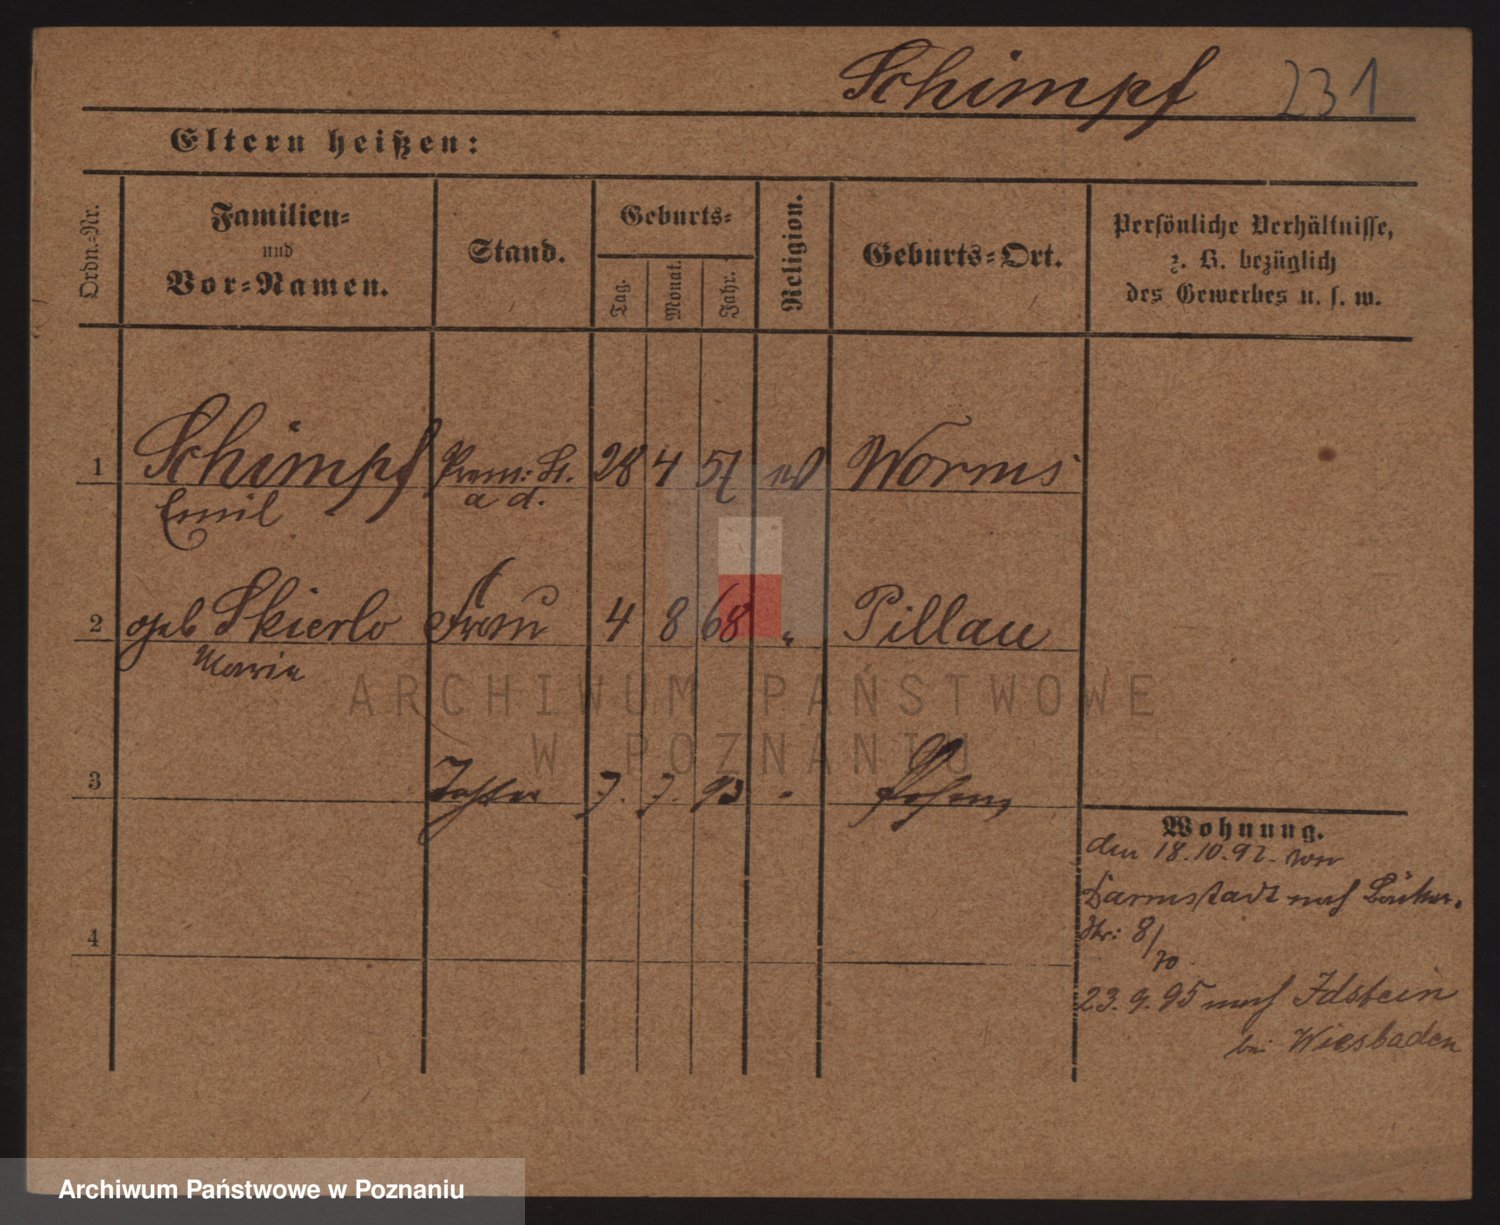 Schimpf 231
Eltern heißen:
Ordn.=Nr.
Familien=
und
Vor=Namen.
Stand.
Geburts=
Tag.
Monat.
Jahr.
Religion.
Geburts=Ort.
Persönliche Verhältnisse,
z. B. bezüglich
des Gewerbes u. s. w.
1 Schimpf Prem: Lt. 28 4 57 Worms
Emil a d.
2 geb Skierlo Frau 4 8 68 " Pillau
Maria
3 Tochter 7. 7. 93 " Posen
4
Wohnung.
den 18.10.92. von
Darmstadt nach
Str: 8/
70
23. 9. 95 nach Idstein
bei Wiesbaden
ARCHIWUM PAŃSTWOWE
W POZNANIU
Archiwum Państwowe w Poznaniu